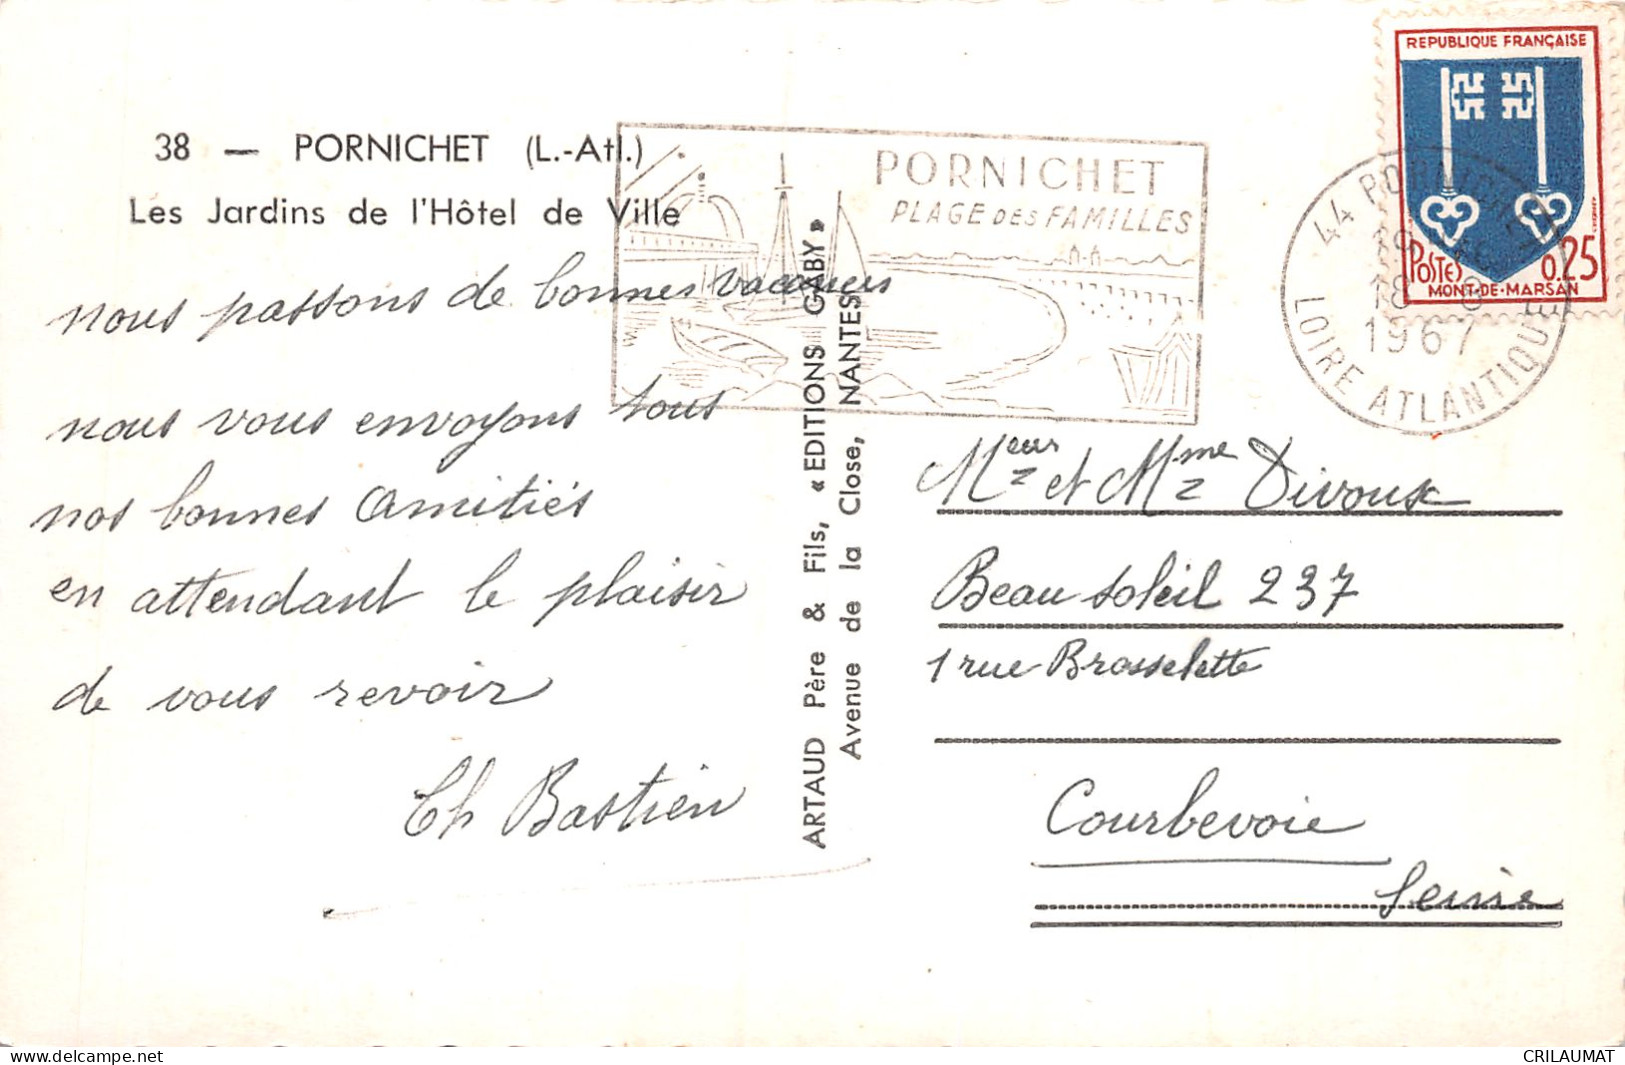 38 — PORNICHET (L.-Atl.)
Les Jardins de l'Hôtel de Ville
nous passons de bonnes vacances
nous vous envoyons tous
nos bonnes amitiés
en attendant le plaisir
de vous revoir
Ch Bastien
ARTAUD Père & Fils, « EDITIONS GABY »
Avenue de la Close, NANTES
PORNICHET
PLAGE DES FAMILLES
44 PORNICHET
18
1967
LOIRE ATLANTIQUE
REPUBLIQUE FRANÇAISE
POSTES 0,25
MONT-DE-MARSAN
Meur et Mme Divoux
Beau soleil 237
1 rue Brosselette
Courbevoie
Seine
delcampe.net
CRILAUMAT